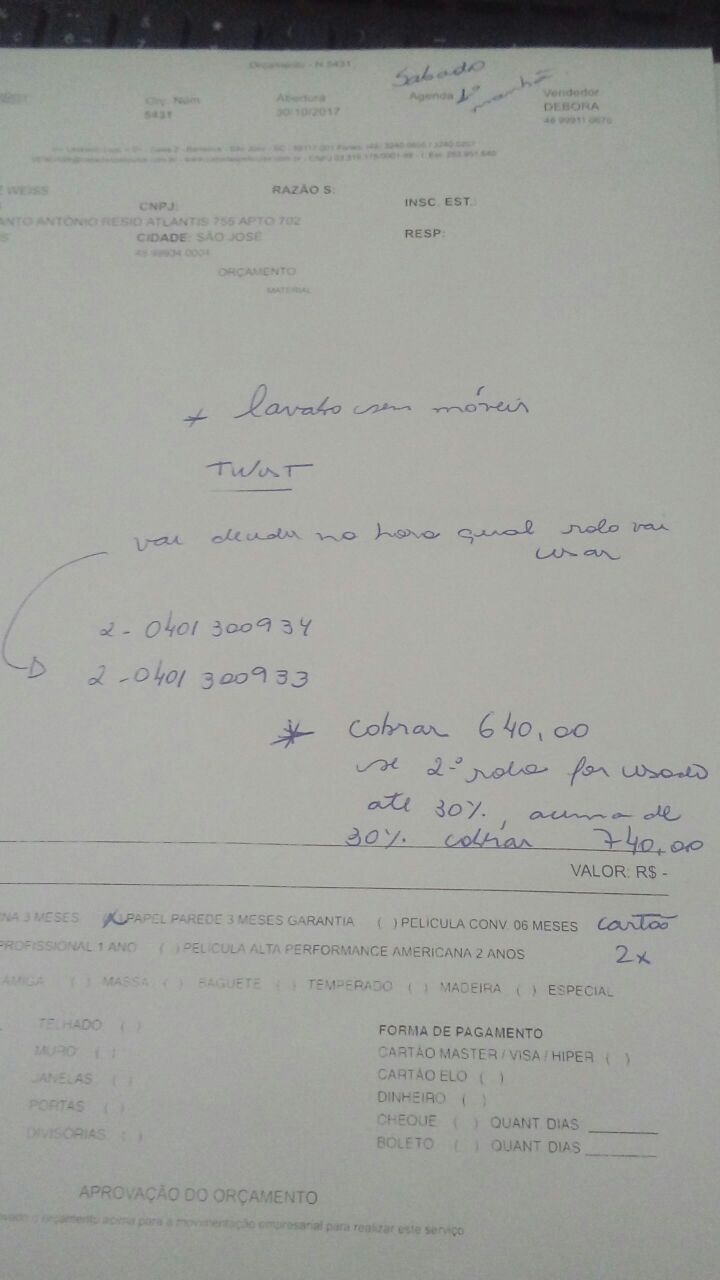 Orçamento - N 5431
Sabado
1º manhã
Orç. Núm
Abertura
Agenda
Vendedor
5431
30/10/2017
DEBORA
48 99911 0676
WEISS
RAZÃO S:
CNPJ:
INSC. EST.:
ANTO ANTÔNIO RESID ATLANTIS 755 APTO 702
CIDADE: SÃO JOSÉ
RESP:
48 99934 0004
ORÇAMENTO
MATERIAL
* lavabo sem móveis
TWIST
vai decidir na hora qual rolo vai
usar
2 - 0401 300934
2 - 0401 300933
* cobrar 640,00
se 2º rolo for usado
até 30%, acima de
30% cobrar 740,00
VALOR: R$ -
NA 3 MESES (X) PAPEL PAREDE 3 MESES GARANTIA ( ) PELÍCULA CONV. 06 MESES cartão
PROFISSIONAL 1 ANO ( ) PELÍCULA ALTA PERFORMANCE AMERICANA 2 ANOS 2x
AMIGA ( ) MASSA ( ) BAGUETE ( ) TEMPERADO ( ) MADEIRA ( ) ESPECIAL
TELHADO ( )
FORMA DE PAGAMENTO
MURO ( )
CARTÃO MASTER / VISA / HIPER ( )
JANELAS ( )
CARTÃO ELO ( )
PORTAS ( )
DINHEIRO ( )
DIVISÓRIAS ( )
CHEQUE ( ) QUANT. DIAS
BOLETO ( ) QUANT. DIAS
APROVAÇÃO DO ORÇAMENTO
o orçamento acima para a movimentação empresarial para realizar este serviço